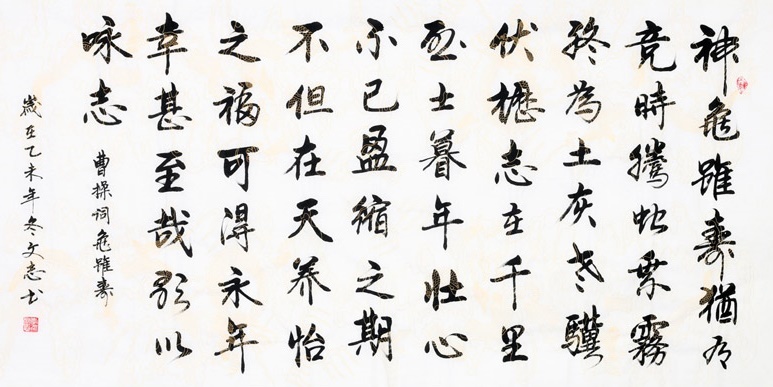 神龜雖壽猶有
竟時騰蛇乘霧
終為土灰老驥
伏櫪志在千里
烈士暮年壯心
不已盈縮之期
不但在天养怡
之福可得永年
幸甚至哉歌以
咏志
曹操詞龜雖壽
歲在乙未年冬文志书